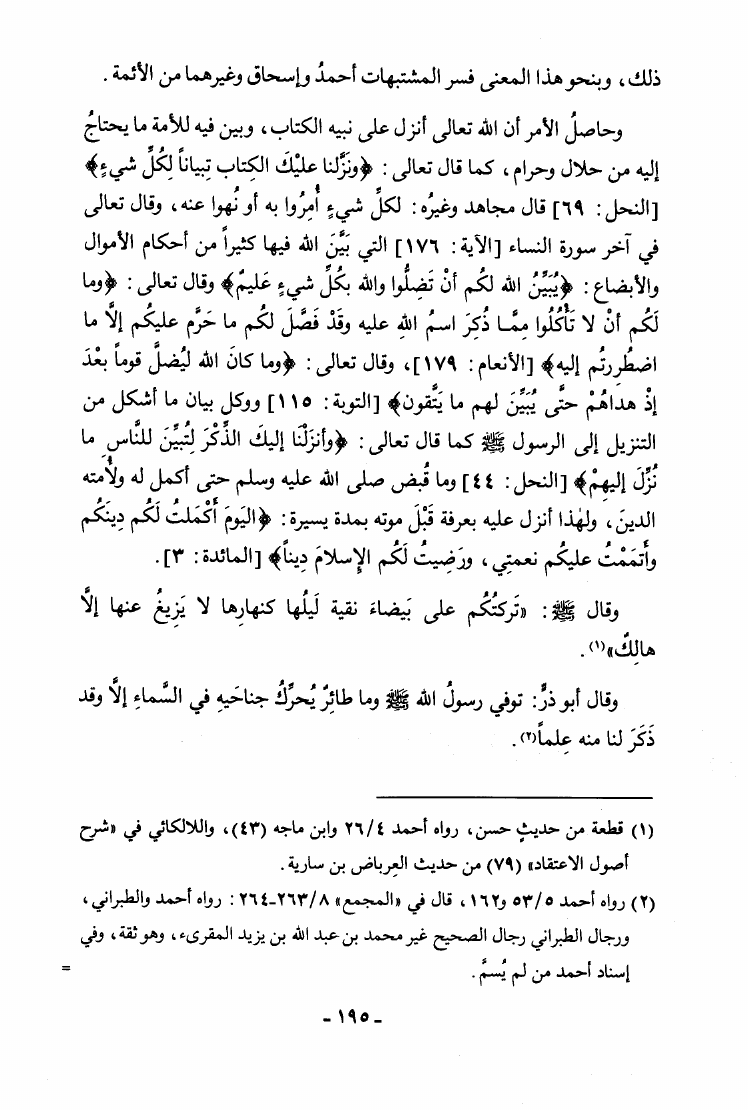 ذلك، وبنحو هذا المعنى فسر المشتبهات أحمدُ وإسحاق وغيرهما من الأئمة.
وحاصلُ الأمر أن الله تعالى أنزل على نبيه الكتاب، وبين فيه للأمة ما يحتاجُ
إليه من حلال وحرام، كما قال تعالى: ﴿ونَزَّلنا عليْكَ الكِتاب تِبياناً لِكُلِّ شيءٍ﴾
[النحل: ٦٩] قال مجاهد وغيرُه: لكلِّ شيءٍ أُمِرُوا به أو نُهوا عنه، وقال تعالى
في آخر سورة النساء [الآية: ١٧٦] التي بَيَّنَ الله فيها كثيراً من أحكام الأموال
والأبضاع: ﴿يُبَيِّنُ الله لكُم أنْ تَضِلُّوا والله بكُلِّ شيءٍ عَليمٌ﴾ وقال تعالى: ﴿وما
لَكُم أنْ لا تَأْكُلُوا مِمَّا ذُكِرَ اسمُ اللهِ عليه وقَدْ فَصَّلَ لكُم ما حَرَّم عليكُم إلَّا ما
اضطُرِرتُم إليه﴾ [الأنعام: ١٧٩]، وقال تعالى: ﴿وما كانَ الله لِيُضلَّ قوماً بعْدَ
إذْ هداهُمْ حتَّى يُبَيِّنَ لهم ما يَتَّقون﴾ [التوبة: ١١٥] ووكل بيان ما أشكل من
التنزيل إلى الرسول ﷺ كما قال تعالى: ﴿وأنزَلْنا إليكَ الذِّكْرَ لتُبيِّنَ للنَّاسِ ما
نُزِّلَ إليهِمْ﴾ [النحل: ٤٤] وما قُبض صلى الله عليه وسلم حتى أكمل له ولأمته
الدينَ، ولهٰذا أنزل عليه بعرفة قَبْلَ موته بمدة يسيرة: ﴿اليَومَ أَكْمَلتُ لَكُم دِينَكُم
وأَتمَمْتُ عليكُم نعمتِي، ورَضِيتُ لَكُم الإسلامَ دِيناً﴾ [المائدة: ٣].
وقال ﷺ: «تَركتُكُم على بَيضاءَ نقية لَيلُها كنهارِها لا يَزِيغُ عنها إلَّا
هالِكٌ»(١).
وقال أبو ذرٍّ: توفي رسولُ الله ﷺ وما طائِرٌ يُحرِّكُ جناحَيهِ في السَّماءِ إلَّا وقد
ذَكَرَ لنا منه عِلماً(٢).
(١) قطعة من حديثٍ حسن، رواه أحمد ٢٦/٤ وابن ماجه (٤٣)، واللالكائي في «شرح
أصول الاعتقاد» (٧٩) من حديث العِرباض بن سارية.
(٢) رواه أحمد ٥٣/٥ و١٦٢، قال في «المجمع» ٢٦٣/٨-٢٦٤: رواه أحمد والطبراني،
ورجال الطبراني رجال الصحيح غير محمد بن عبد الله بن يزيد المقرىء، وهو ثقة، وفي
إسناد أحمد من لم يُسمَّ. =
ـ ١٩٥ ـ